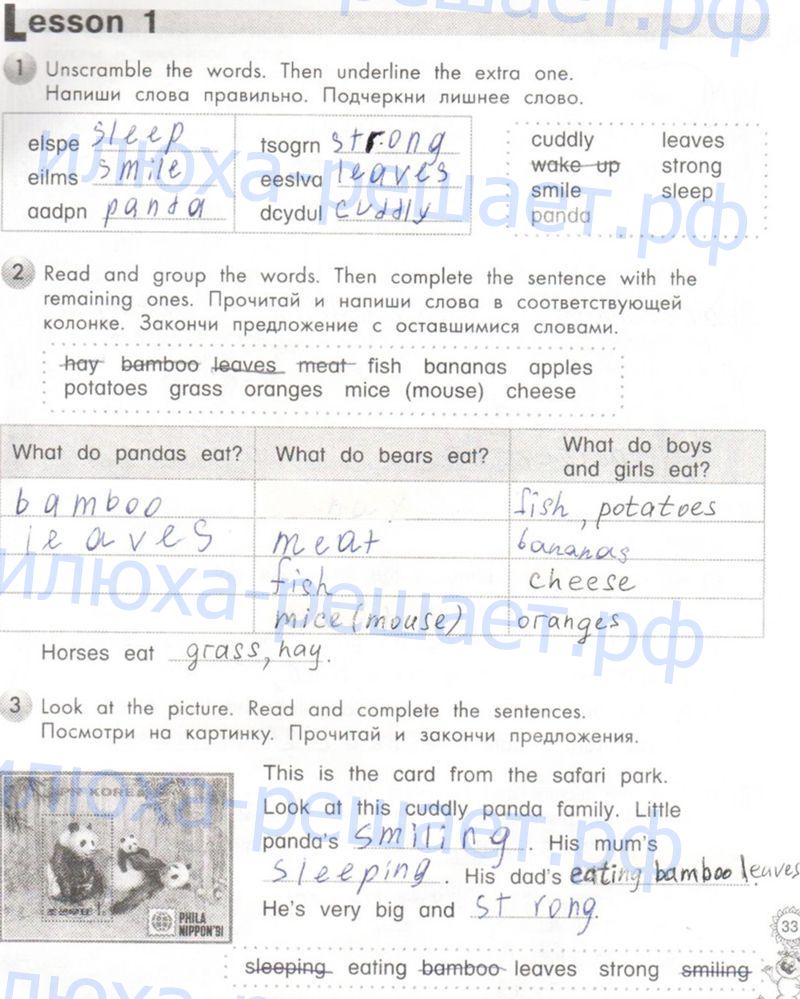 Lesson 1
1 Unscramble the words. Then underline the extra one.
Напиши слова правильно. Подчеркни лишнее слово.
elspe sleep tsogrn strong cuddly leaves
eilms smile eeslva leaves wake up strong
aadpn panda dcydul cuddly smile sleep
panda
2 Read and group the words. Then complete the sentence with the
remaining ones. Прочитай и напиши слова в соответствующей
колонке. Закончи предложение с оставшимися словами.
hay bamboo leaves meat fish bananas apples
potatoes grass oranges mice (mouse) cheese
What do pandas eat? What do bears eat? What do boys and girls eat?
bamboo fish, potatoes
leaves meat bananas
fish cheese
mice (mouse) oranges
Horses eat grass, hay.
3 Look at the picture. Read and complete the sentences.
Посмотри на картинку. Прочитай и закончи предложения.
This is the card from the safari park.
Look at this cuddly panda family. Little
panda's smiling. His mum's
sleeping. His dad's eating bamboo leaves
He's very big and strong.
PHILA
NIPPON'91
33
sleeping eating bamboo leaves strong smiling
илюха-решает.рф
илюха-решает.рф
илюха-решает.рф
илюха-решает.рф